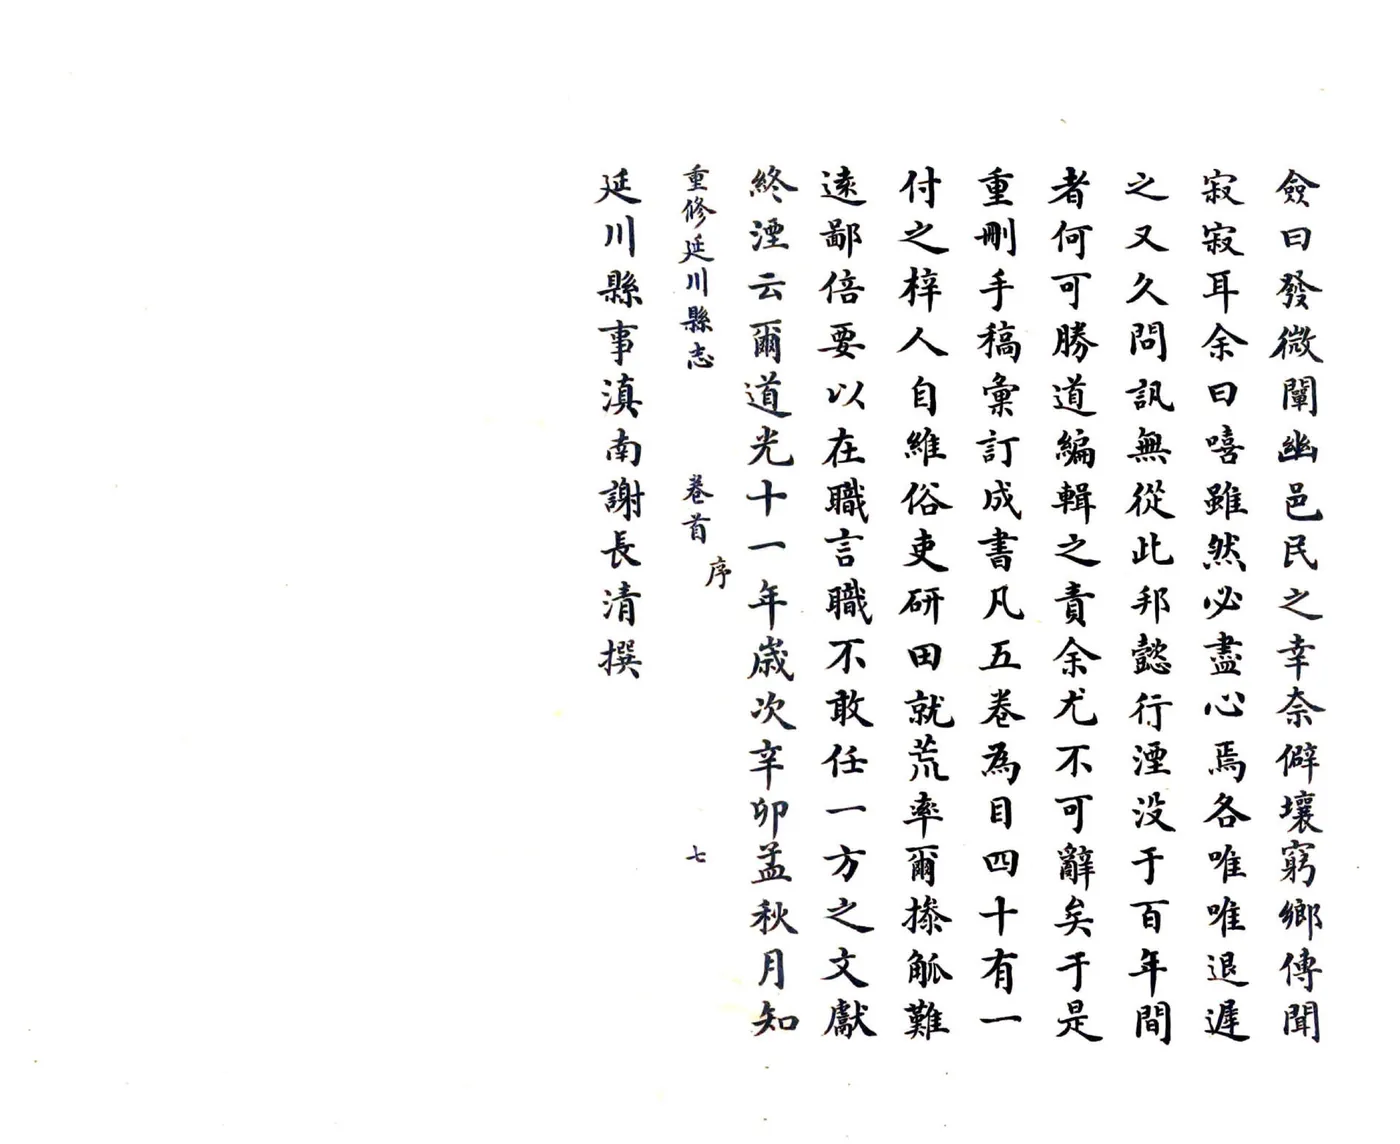 僉曰發微闡幽邑民之幸奈僻壤窮鄉傳聞
寂寂耳余曰嘻雖然必盡心焉各唯唯退遲
之又久問訊無從此邦懿行湮没于百年間
者何可勝道編輯之責余尤不可辭矣于是
重刪手稿彙訂成書凡五卷為目四十有一
付之梓人自維俗吏研田就荒率爾搽觚難
遠鄙倍要以在職言職不敢任一方之文獻
終湮云爾道光十一年歳次辛卯孟秋月知
重修延川縣志 卷首 序 七
延川縣事滇南謝長清撰